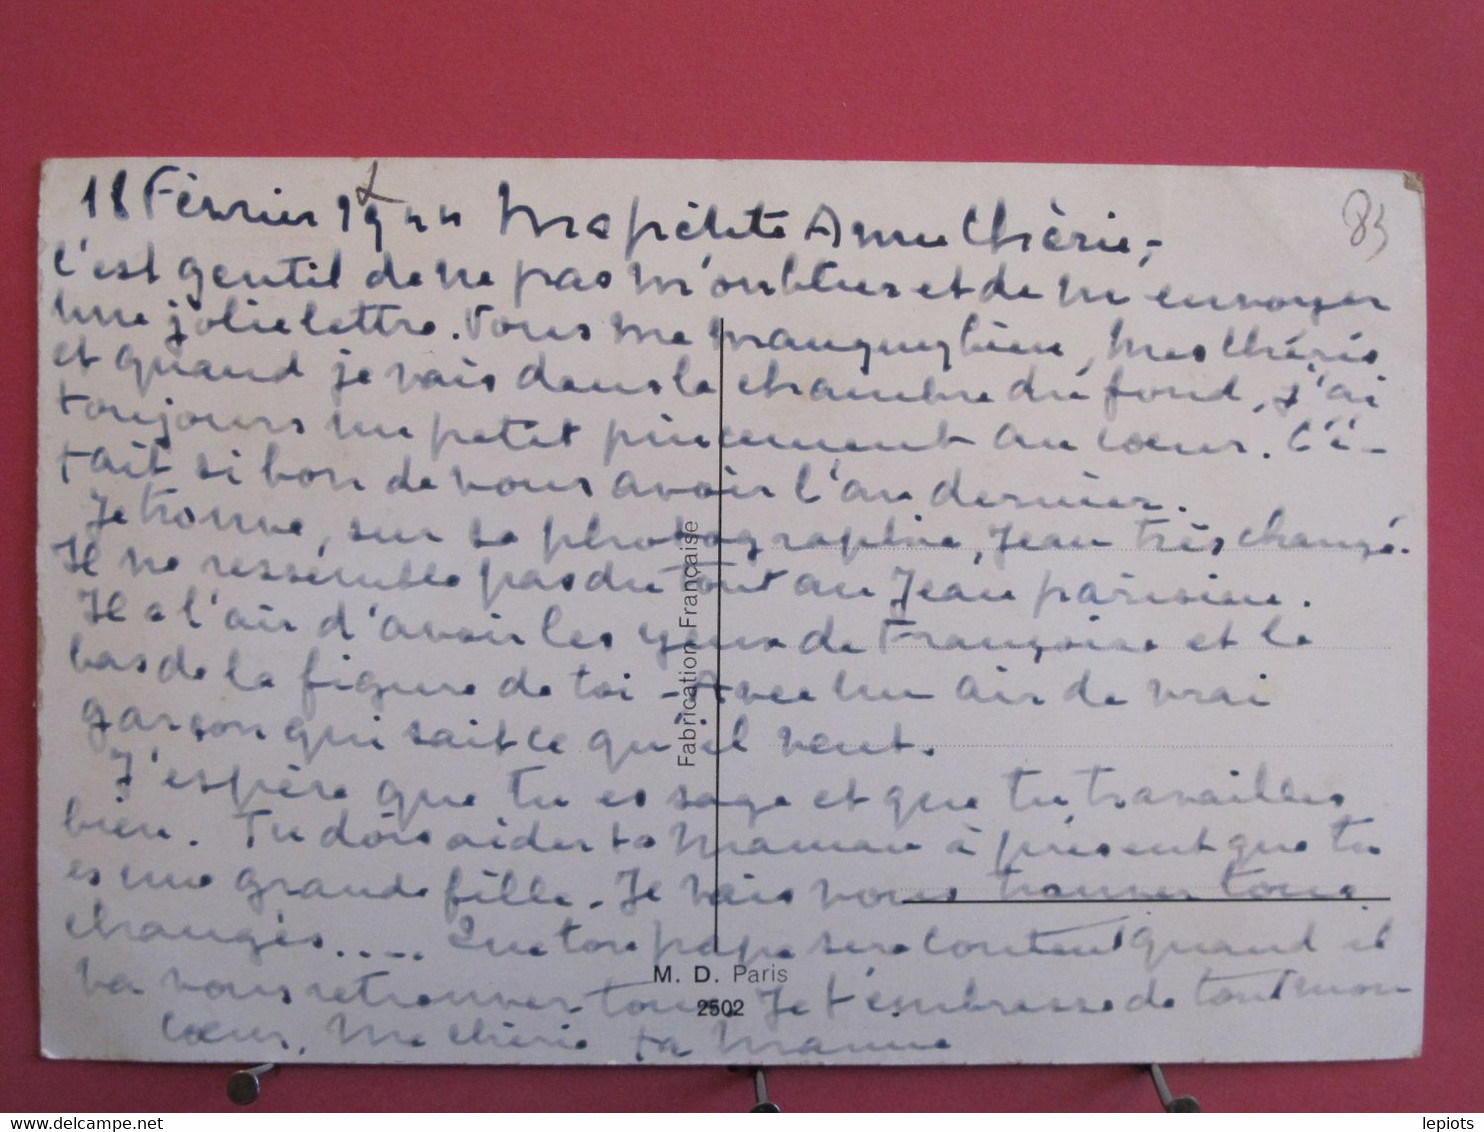 18 Février 1944 Ma petite Anne Chérie,
C'est gentil de ne pas m'oublier et de m'envoyer
une jolie lettre. Vous me manquez bien, mes chéris
et quand je vais dans la chambre du fond, j'ai
toujours un petit pincement au cœur. C'é-
tait si bon de vous avoir l'an dernier.
Je trouve, sur sa photographie, Jean très changé.
Il ne ressemble pas du tout au Jean parisien.
Il a l'air d'avoir les yeux de Françoise et le
bas de la figure de toi - Avec un air de vrai
garçon qui sait ce qu'il veut.
J'espère que tu es sage et que tu travailles
bien. Tu dois aider ta maman à présent que tu
es une grande fille. Je vais vous trouver tous
changés..... Que ton papa sera content quand il
va vous retrouver tous. Je t'embrasse de tout mon
cœur, ma chérie ta
83
Fabrication Française
M. D. Paris
2502
www.delcampe.net
lepiots